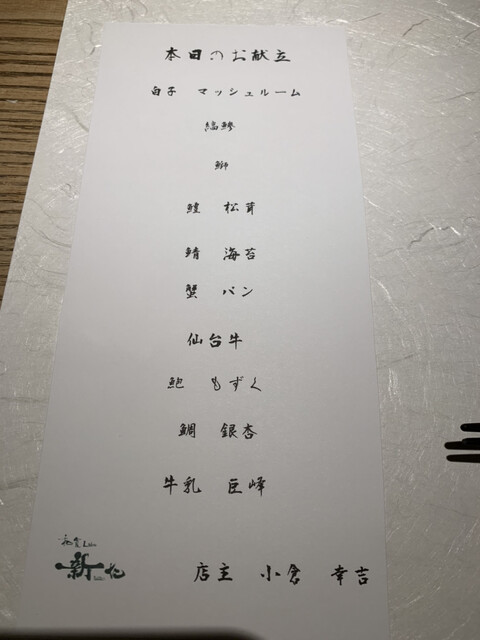 本日のお献立
白子 マッシュルーム
縞鯵
鰤
鱧 松茸
鯖 海苔
蟹 パン
仙台牛
鮑 もずく
鯛 銀杏
牛乳 巨峰
新
店主 小倉 幸吉